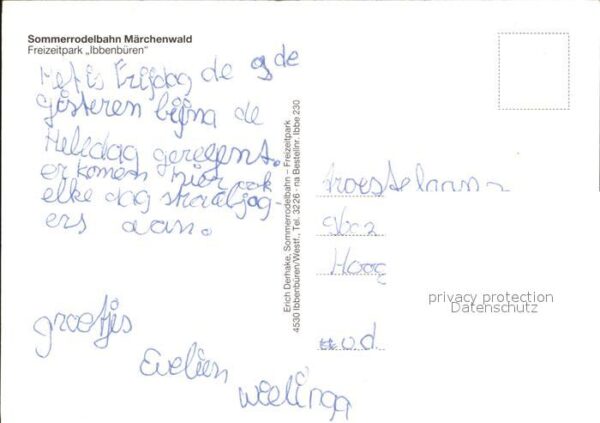 Sommerrodelbahn Märchenwald
Freizeitpark „Ibbenbüren"
Het is Frijdag de 9de
gisteren bijna de
Heledag geregent.
er komen hier ook
elke dag straaljag-
ers aan.
grootjes
Evelien
wielinga
Erich Derhake, Sommerrodelbahn – Freizeitpark
4530 Ibbenbüren/Westf., Tel. 3226 · na Bestellnr. Ibbe 230
Hoog
privacy protection
Datenschutz